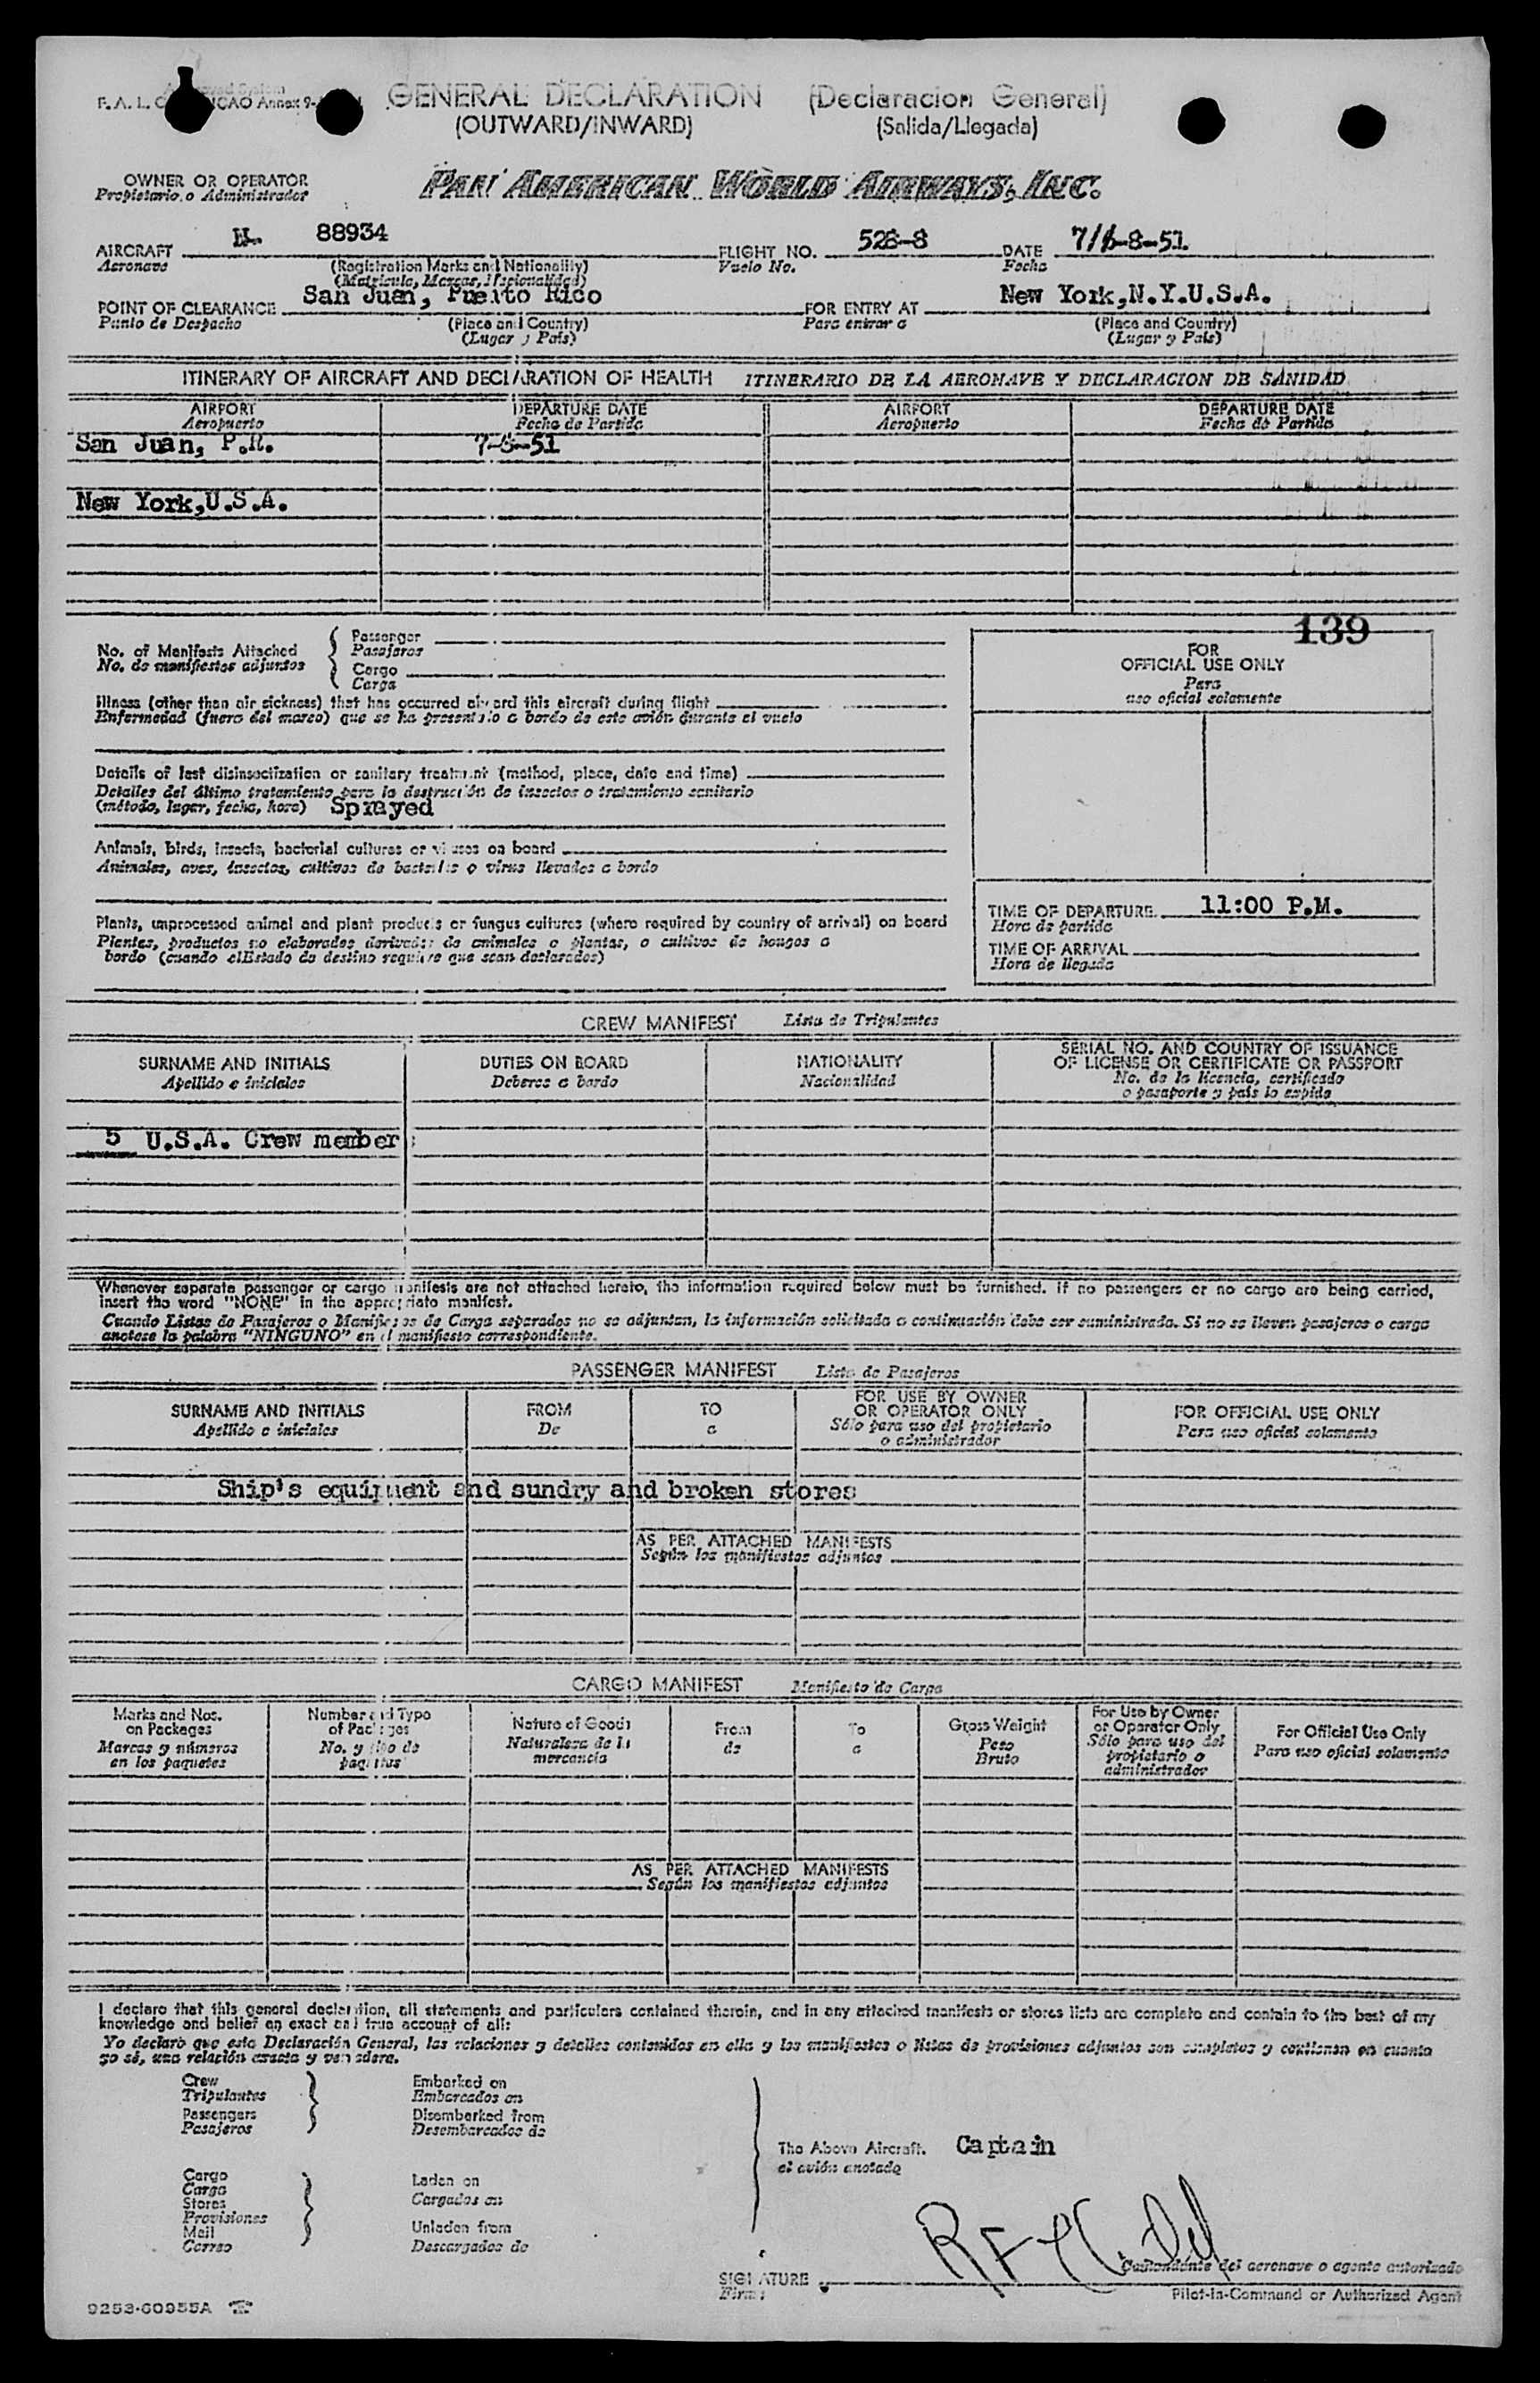 F. A. L. ICAO Annex 9-
GENERAL DECLARATION (Declaracion General)
(OUTWARD/INWARD) (Salida/Llegada)
OWNER OR OPERATOR
Propietario o Administrador
PAN AMERICAN WORLD AIRWAYS, INC.
AIRCRAFT N. 88934 FLIGHT NO. 526-8 DATE 7/6-8-51
Aeronave (Registration Marks and Nationality) Vuelo No. Fecha
(Matricula, Marcas, Nacionalidad)
POINT OF CLEARANCE San Juan, Puerto Rico FOR ENTRY AT New York,N.Y.U.S.A.
Punto de Despacho (Place and Country) Para entrar a (Place and Country)
(Lugar y País) (Lugar y País)
ITINERARY OF AIRCRAFT AND DECLARATION OF HEALTH ITINERARIO DE LA AERONAVE Y DECLARACION DE SANIDAD
AIRPORT DEPARTURE DATE AIRPORT DEPARTURE DATE
Aeropuerto Fecha de Partida Aeropuerto Fecha de Partida
San Juan, P.R. 7-8-51
New York,U.S.A.
139
No. of Manifests Attached
No. de manifiestos adjuntos
Passenger
Pasajeros
Cargo
Carga
FOR
OFFICIAL USE ONLY
Para
uso oficial solamente
Illness (other than air sickness) that has occurred aboard this aircraft during flight
Enfermedad (fuera del mareo) que se ha presentado a bordo de este avión durante el vuelo
Details of last disinsectization or sanitary treatment (method, place, date and time)
Detalles del último tratamiento para la destrucción de insectos o tratamiento sanitario
(método, lugar, fecha, hora) Sprayed
Animals, birds, insects, bacterial cultures or viruses on board
Animales, aves, insectos, cultivos de bacterias o virus llevados a bordo
Plants, unprocessed animal and plant products or fungus cultures (where required by country of arrival) on board
Plantas, productos no elaborados derivados de animales o plantas, o cultivos de hongos a
bordo (cuando elEstado de destino requiere que sean declarados)
TIME OF DEPARTURE 11:00 P.M.
Hora de partida
TIME OF ARRIVAL
Hora de llegada
CREW MANIFEST Lista de Tripulantes
SURNAME AND INITIALS DUTIES ON BOARD NATIONALITY SERIAL NO. AND COUNTRY OF ISSUANCE
OF LICENSE OR CERTIFICATE OR PASSPORT
Apellido e iniciales Deberes a bordo Nacionalidad No. de la licencia, certificado
o pasaporte y país lo expide
5 U.S.A. Crew members
Whenever separate passenger or cargo manifests are not attached hereto, the information required below must be furnished. If no passengers or no cargo are being carried,
insert the word "NONE" in the appropriate manifest.
Cuando Listas de Pasajeros o Manifiestos de Carga separados no se adjuntan, la información solicitada a continuación debe ser suministrada. Si no se lleven pasajeros o carga
anotese la palabra "NINGUNO" en el manifiesto correspondiente.
PASSENGER MANIFEST Lista de Pasajeros
SURNAME AND INITIALS FROM TO FOR USE BY OWNER
OR OPERATOR ONLY FOR OFFICIAL USE ONLY
Apellido e iniciales De a Sólo para uso del propietario
o administrador Para uso oficial solamente
Ship's equipment and sundry and broken stores
AS PER ATTACHED MANIFESTS
Según los manifiestos adjuntos
CARGO MANIFEST Manifiesto de Carga
Marks and Nos.
on Packages
Marcas y números
en los paquetes
Number and Type
of Packages
No. y tipo de
paquetes
Nature of Goods
Naturaleza de la
mercancía
From
de
To
a
Gross Weight
Peso
Bruto
For Use by Owner
or Operator Only
Sólo para uso del
propietario o
administrador
For Official Use Only
Para uso oficial solamente
AS PER ATTACHED MANIFESTS
Según los manifiestos adjuntos
I declare that this general declaration, all statements and particulars contained therein, and in any attached manifests or stores lists are complete and contain to the best of my
knowledge and belief an exact and true account of all:
Yo declaro que esta Declaración General, las relaciones y detalles contenidos en ella y los manifiestos o listas de provisiones adjuntos son completos y contienen en cuanto
yo sé, una relación exacta y verdadera.
Crew
Tripulantes
Passengers
Pasajeros
Embarked on
Embarcados en
Disembarked from
Desembarcados de
Cargo
Carga
Stores
Provisiones
Mail
Correo
Laden on
Cargados en
Unladen from
Descargados de
The Above Aircraft. Captain
el avión anotado
SIGNATURE
Firma
Comandante del aeronave o agente autorizado
Pilot-in-Command or Authorized Agent
9253-60955A